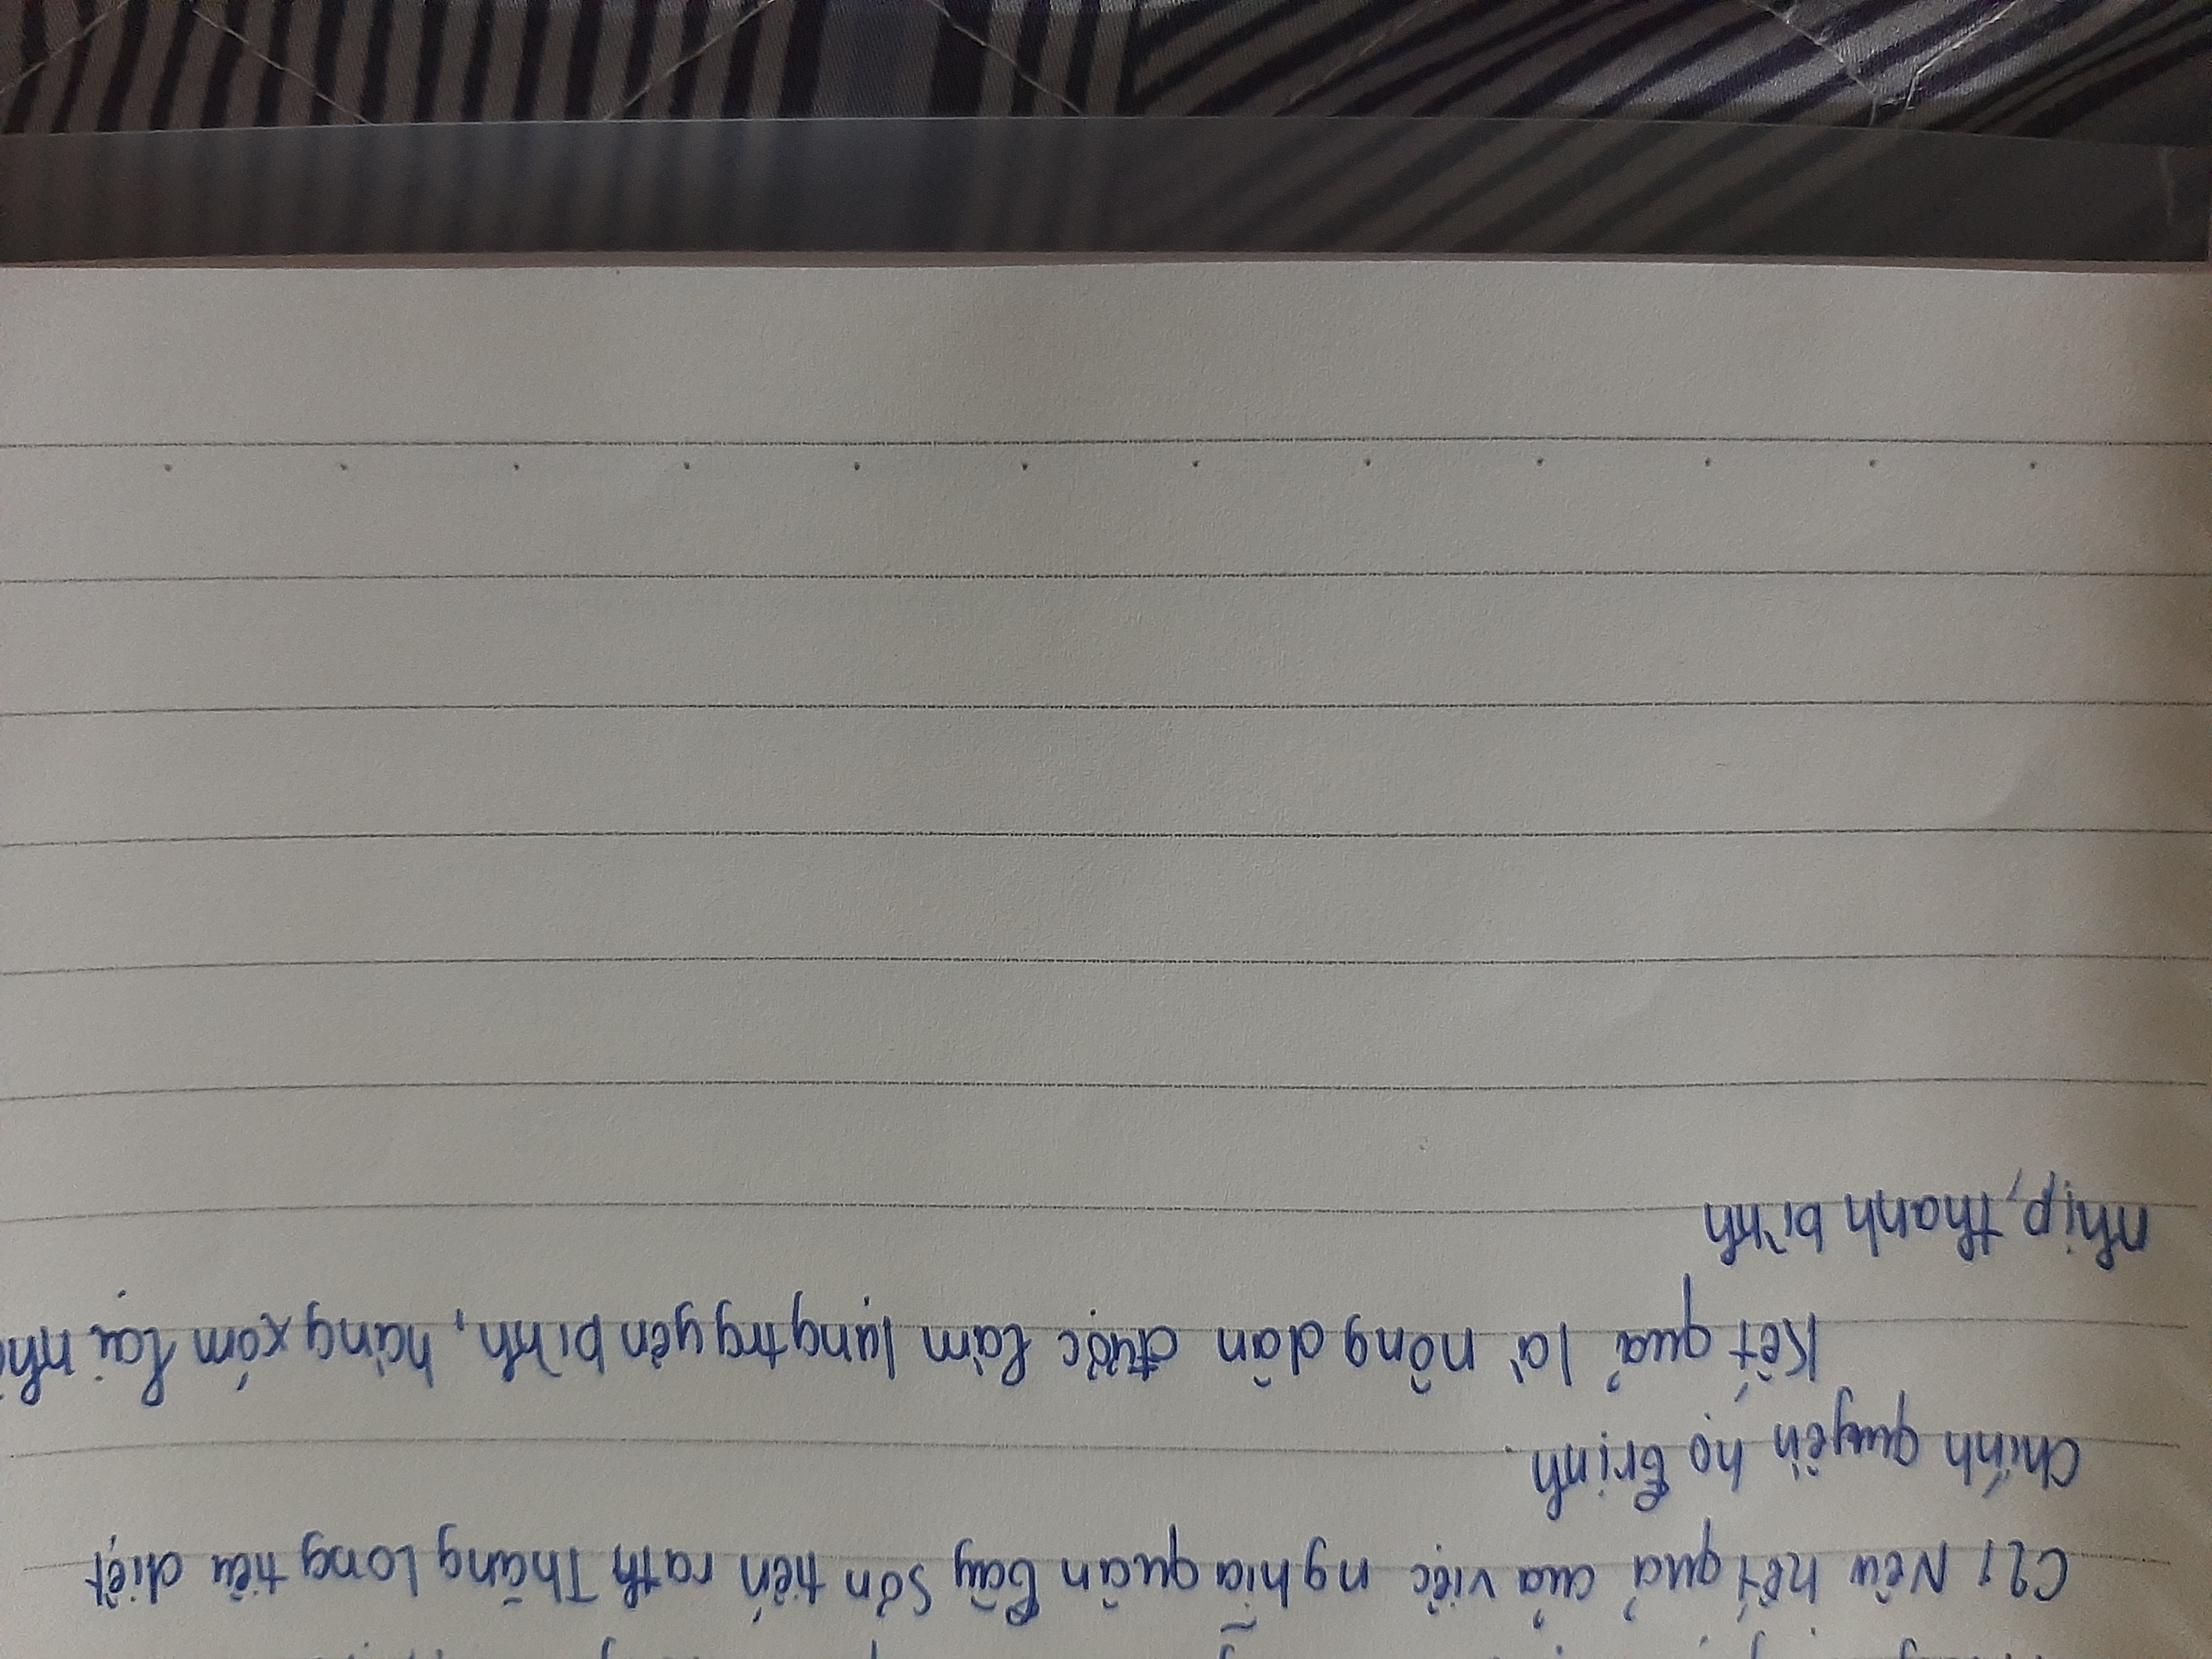 C2: Nêu kết quả của việc nghĩa quân Tây Sơn tiến ra Thăng Long tiêu diệt
chính quyền họ Trịnh.
Kết quả là nông dân được làm lụng yên bình, hàng xóm lại
nhịp, thanh bình